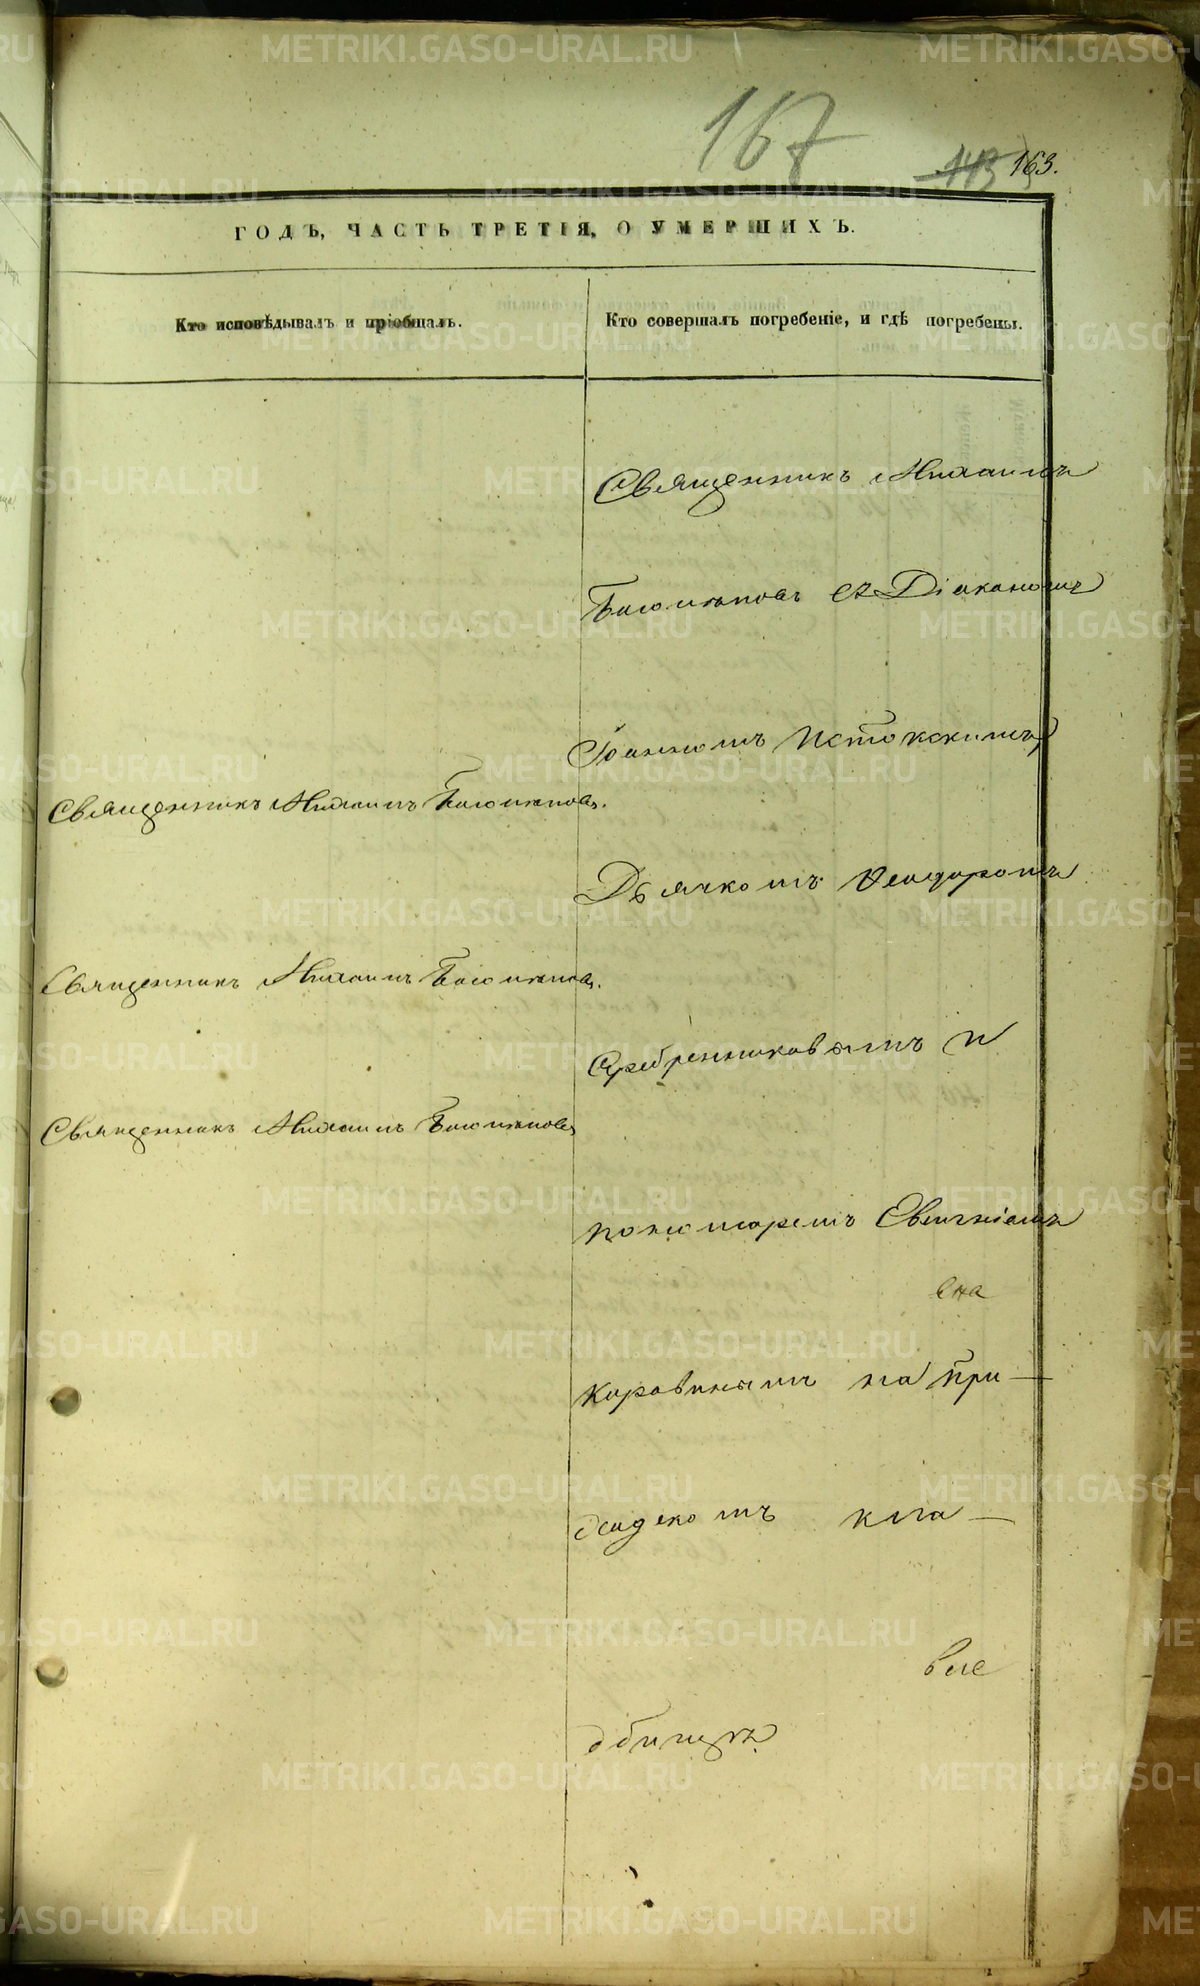 167
113 163.
ГОДЪ, ЧАСТЬ ТРЕТІЯ, О УМЕРШИХЪ.
Кто исповѣдывалъ и пріобщалъ.
Священникъ Михаилъ
Священникъ Михаилъ
Священникъ Михаилъ
Кто совершалъ погребеніе, и гдѣ погребены.
Священникъ Михаилъ
съ Діакономъ
Іоанномъ Истокскимъ,
Дьячкомъ Ѳеодоромъ
Серебренниковымъ и
пономаремъ Евгеніемъ
на при —
ходскомъ кла —
дбищѣ.
METRIKI.GASO-URAL.RU